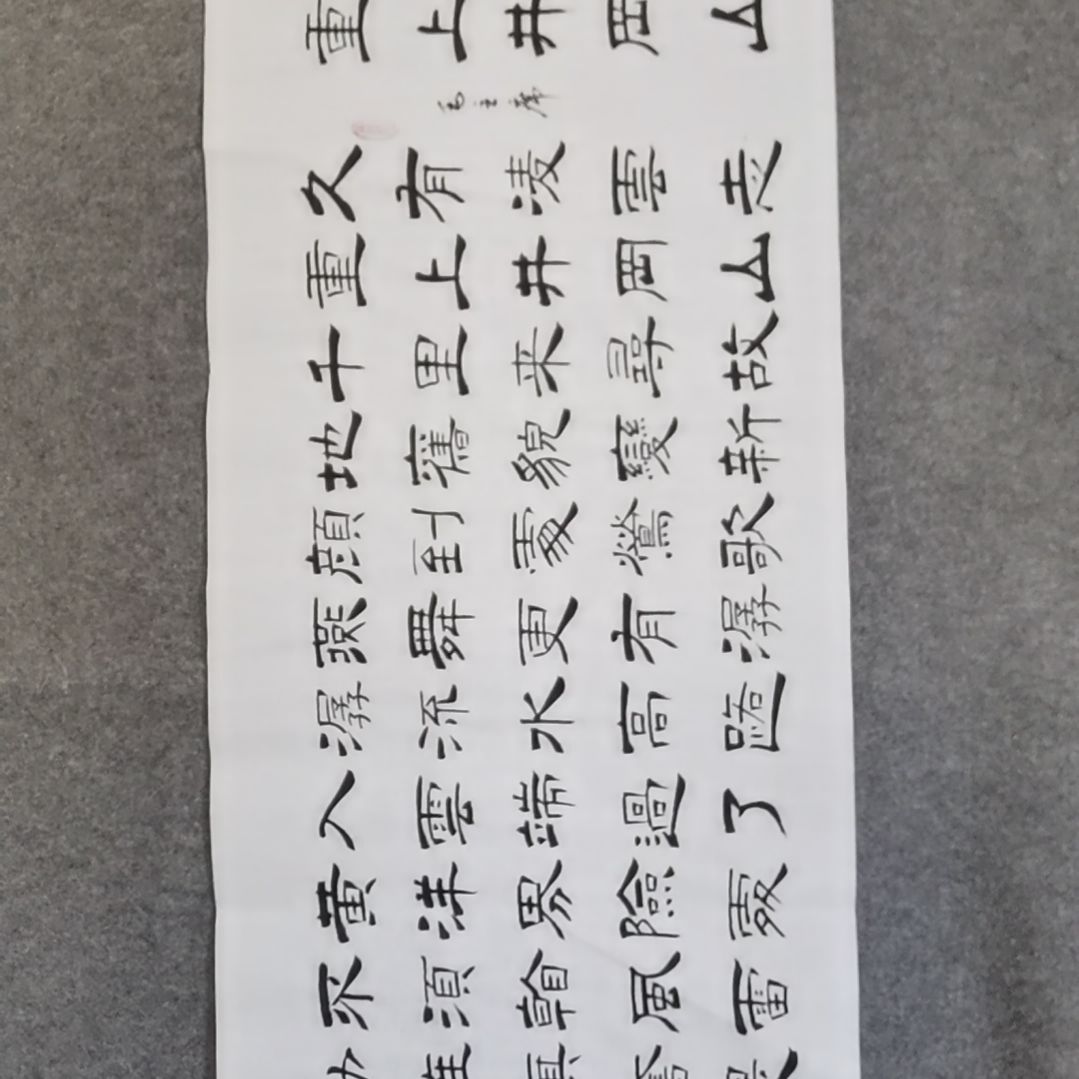 重上井岡山
毛主席
久有凌雲志
重上井岡山
千里来尋故
地舊貌變新
顏到處鶯歌
燕舞更有潺
潺流水高路
入雲端過了
黄洋界險處
不須看風雷